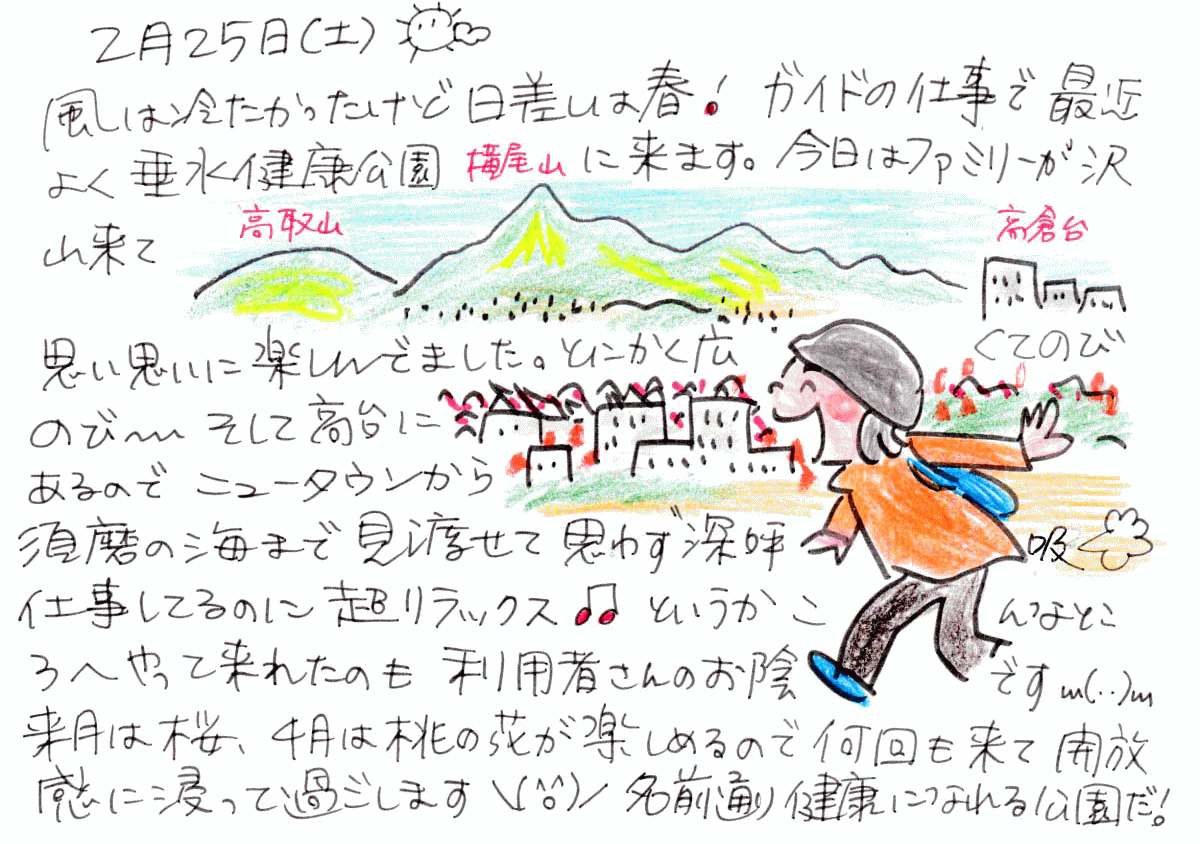 2月25日(土)
風は冷たかったけど日差しは春! ガイドの仕事で最近
よく垂水健康公園 に来ます。今日はファミリーが沢
横尾山
山来て
高取山
高倉台
思い思いに楽しんでました。とにかく広 くてのび
のび〜 そして高台に
あるのでニュータウンから
須磨の海まで見渡せて思わず深呼 吸
仕事してるのに超リラックス♫ というかこ んなとこ
ろへやって来れたのも利用者さんのお陰 ですm(..)m
来月は桜、4月は桃の花が楽しめるので何回も来て開放
感に浸って過ごします \(^o^)/ 名前通り健康になれる公園だ!